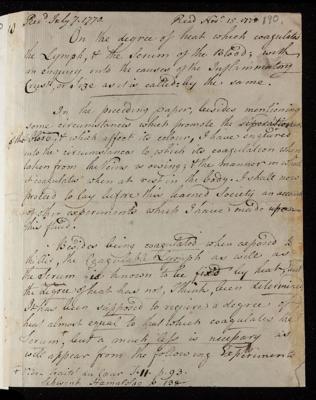 Recd July 7. 1770. Read Novr. 15. 1770 190.
On the degree of heat which coagulates
the Lymph, & the Serum of the Blood; with
an enquiry into the causes of the Inflammatory
Crust, or Size as it is called; by the same.
In the preceding paper, besides mentioning
some circumstances which promote the
of the blood, & which affect its colour, I have enquired
into the circumstances to which its coagulation when
taken from the Veins is owing; & the manner in which
it coagulates when at rest in the body. I shall now
proceed to lay before this learned Society an account
of other experiments which I have made upon
this fluid.
Besides being coagulated when exposed to
the air, the Coagulable Lymph as well as
the Serum is known to be fixed by heat, but
the degree of heat has not, I think, been determined.
It has been supposed to require a degree of
heat almost equal to that which coagulates the
Serum, but a much less is necessary as
will appear from the following Experiments
+ Vide Traité du Coeur T. II. p. 93.
Schwenk Hamatolog. p. 138